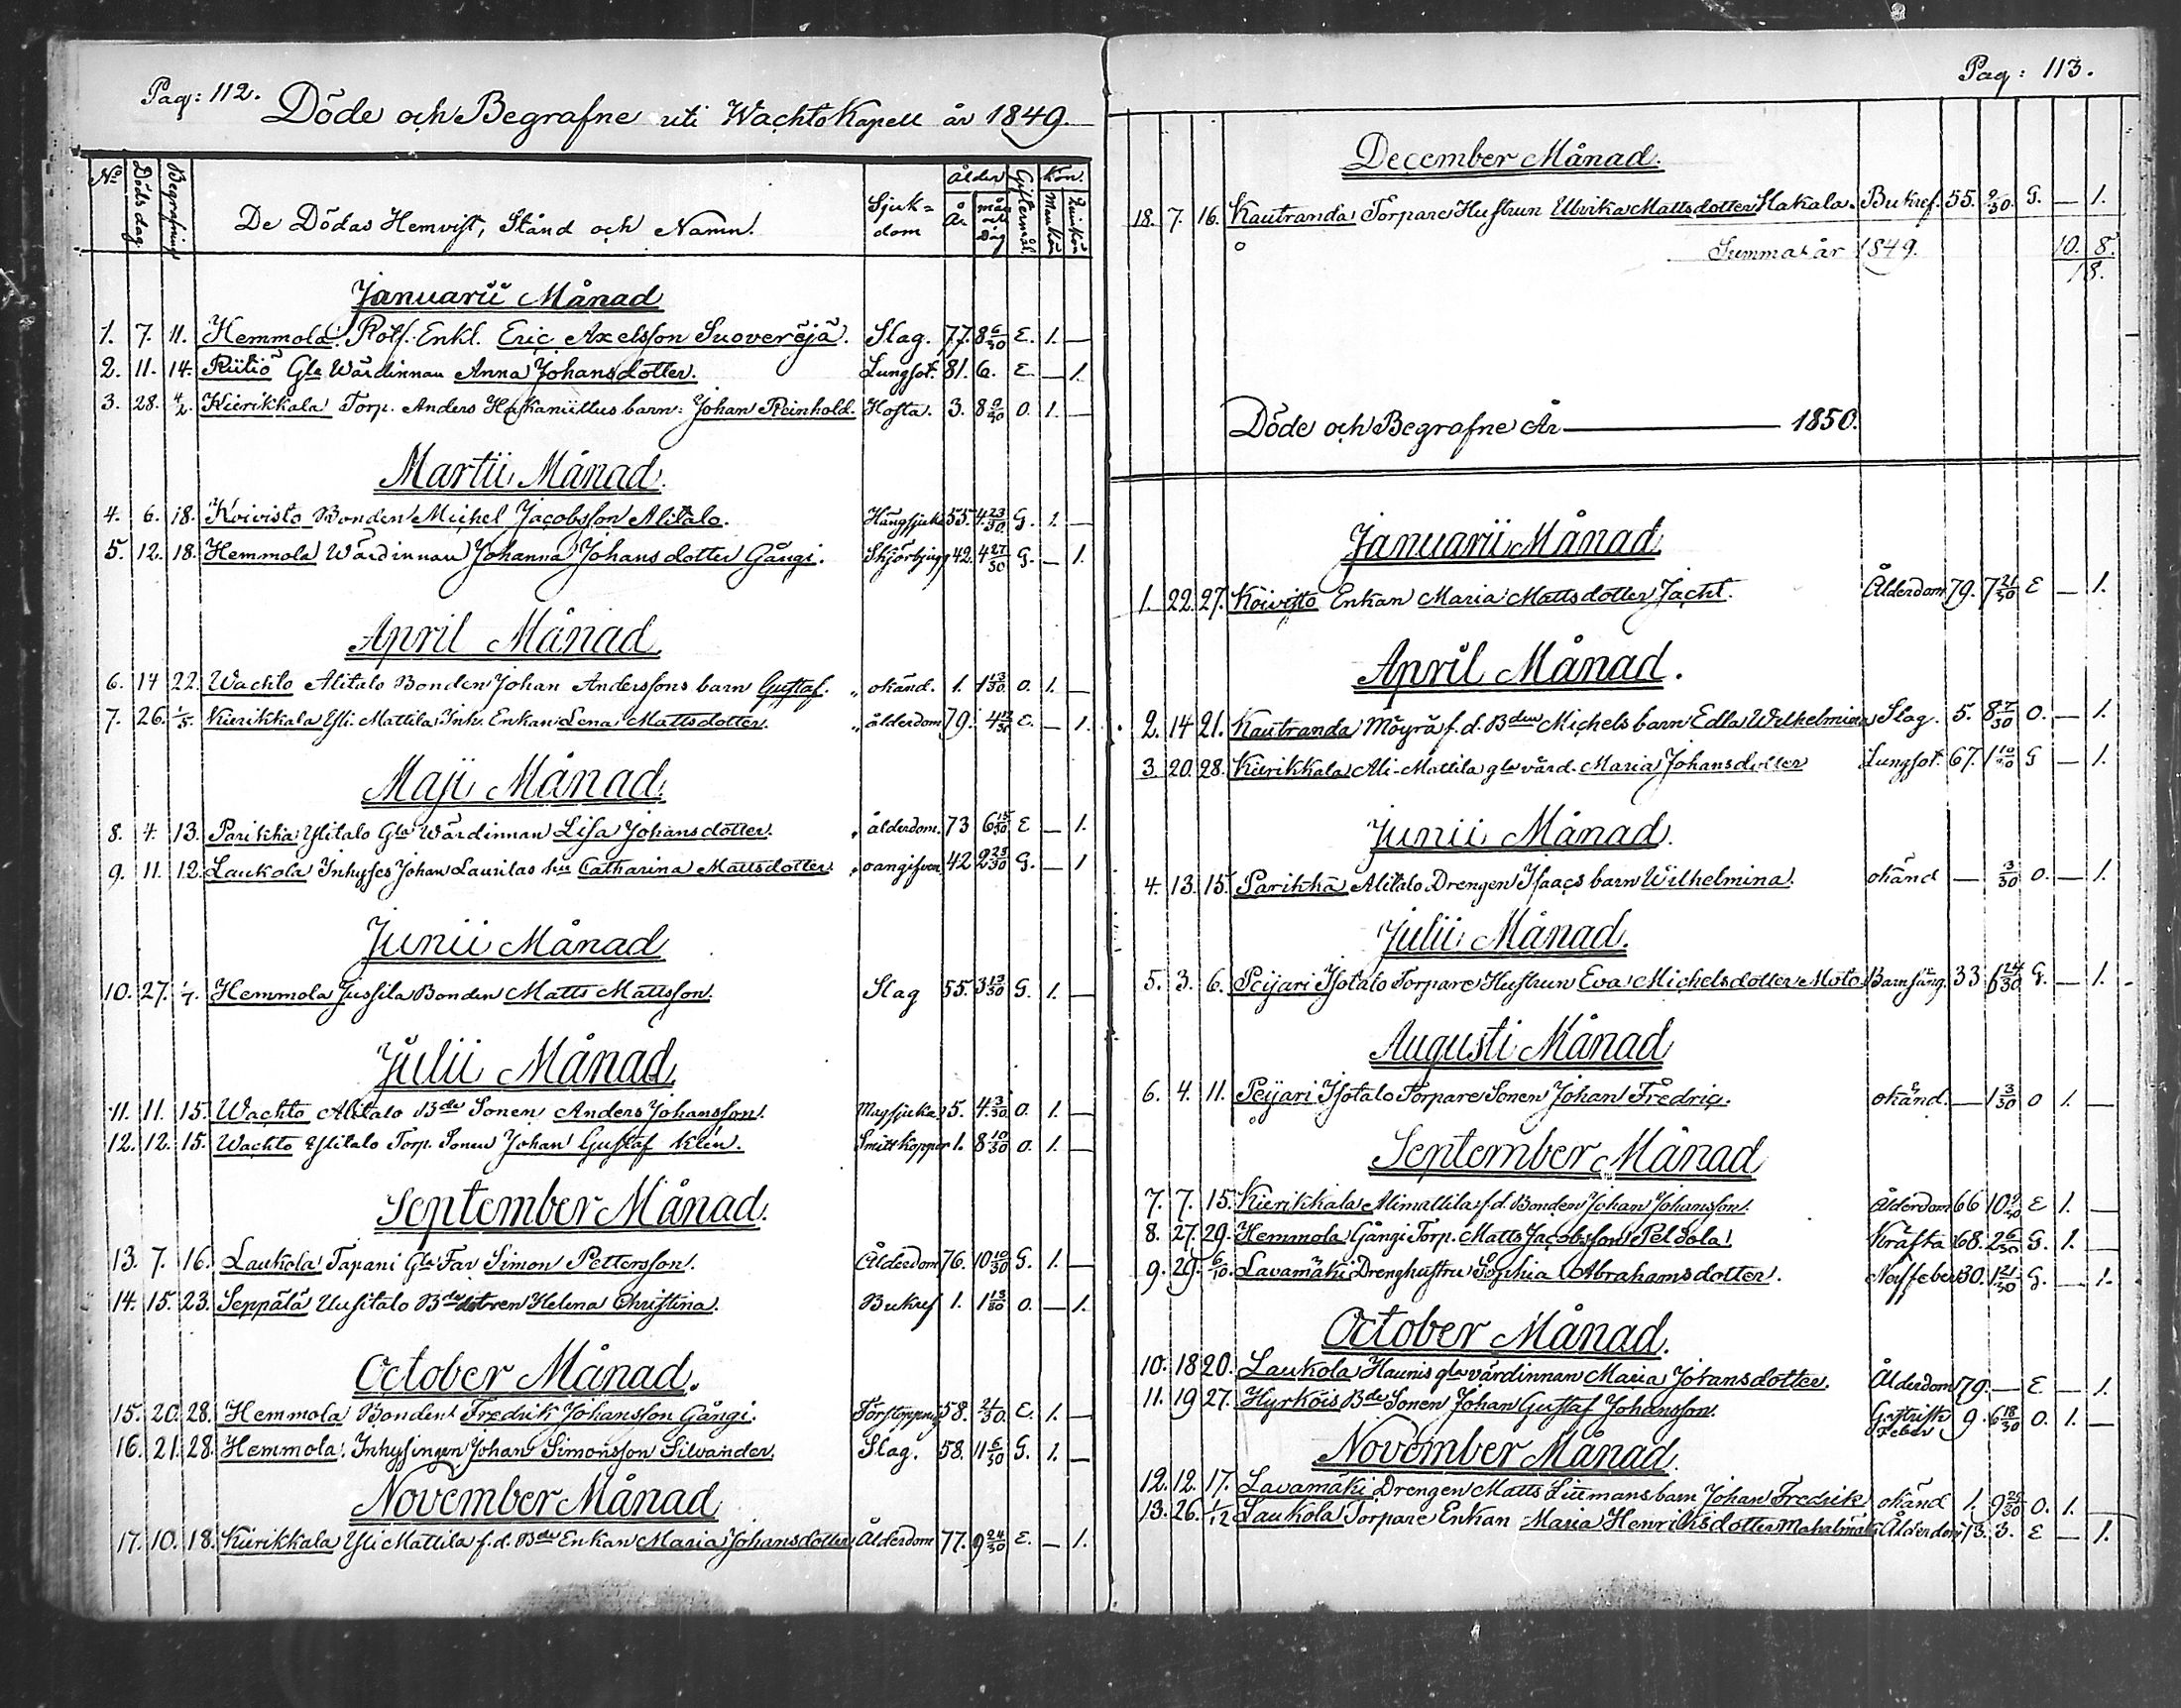 Pag: 112.
Döde och Begrafne uti Wachto Kapell år 1849.
No Döds dag. Begrafning De Dödas Hemvist, Stånd och Namn. Sjuk=dom Ålder År mån och Dag Giftermål. Kön. Mankön Quinkön
Januarii Månad
1. 7. 11. Hemmola. Rotf. Enkl. Eric Axelsson Suoverējā. Slag. 77. 8 6/30 E. 1. —
2. 11. 14. Riitiö Gla Wärdinnan Anna Johansdotter. Lungsot. 81. 6. E. — 1.
3. 28. 4/2. Kierikkala Torp. Anders Hakaniittus barn: Johan Reinhold. Hosta. 3. 8 9/30 O. 1. —
Martii Månad.
4. 6. 18. Koivisto Bonden Michel Jacobsson Alitalo. Hängsjuka 55. 4 23/30. G. 1. —
5. 12. 18. Hemmola Wärdinnan Johanna Johansdotter Gångi. Skjörbjugg 42. 4 27/30 G. — 1.
April Månad.
6. 14 22. Wachto Alitalo Bonden Johan Anderssons barn Gustaf. „ okänd. 1. 1 13/30. O. 1. —
7. 26. 1/5. Kierikkala Yli Mattila Inh. Enkan Lena Mattsdotter. „ ålderdom 79. 4 12/30 E. — 1.
Maji Månad.
8. 4. 13. Parikka Ylitalo Gla Wärdinnan Lisa Johansdotter. „ ålderdom. 73 6 15/30 E — 1.
9. 11. 12. Laukola Inhyses Johan Laurilas hu Catharina Mattsdotter. „ oangifven 42 2 25/30 G. — 1
Junii Månad
10. 27. 1/7. Hemmola Jussila Bonden Matts Mattsson. Slag 55. 3 13/30 G. 1. —
Julii Månad.
11. 11. 15. Wachto Alitalo Bde Sonen Anders Johansson. Magsjuka 5. 4. 3/30 O. 1. —
12. 12. 15. Wachto Ylitalo Torp. Sonen Johan Gustaf Klén. Smittkoppor 1. 8 10/30 O. 1. —
September Månad.
13. 7. 16. Laukola Tapani Gla Far Simon Pettersson. Ålderdom 76. 10 10/30 G. 1. —
14. 15. 23. Seppälä Uusitalo Bde dotren Helena Christina. Bukref 1. 1 13/30 O. — 1.
October Månad.
15. 20. 28. Hemmola Bonden Fredrik Johansson Gångi. Förstoppning 58. 21/30. E. 1. —
16. 21. 28. Hemmola. Inhysingen Johan Simonsson Silvander. Slag. 58. 11 6/30 G. 1. —
November Månad
17. 10. 18. Kierikkala Yli Mattila f.d. Bde Enkan Maria Johansdotter Ålderdom 77. 9 24/30 E. — 1.
Pag: 113.
December Månad.
18. 7. 16. Kautranda Torpare Hustrun Ulrika Mattsdotter Hakala. Bukref. 55. 9/30 G. — 1.
Summa år 1849. 10. 8.
18.
Döde och Begrafne År — 1850.
Januarii Månad
1. 22. 27. Koivisto Enkan Maria Mattsdotter Jacht. Ålderdom 79. 7 21/30 E — 1.
April Månad.
2. 14 21. Kautranda Möyrä f.d. Bden Michels barn Edla Wilhelmina Slag. 5. 8 7/30 O. — 1.
3. 20. 28. Kierikkala Ali-Mattila gla värd. Maria Johansdotter Lungsot. 67. 1 10/30 G — 1.
Junii Månad.
4. 13. 15. Parikka Alitalo Drengen Isaacs barn Wilhelmina. okänd — 3/30 O. — 1.
Julii Månad.
5. 3. 6. Peijari Isotalo Torpare Hustrun Eva Michelsdotter Moto Barnsäng. 33 6 24/30 G. — 1.
Augusti Månad
6. 4. 11. Peijari Isotalo Torpare Sonen Johan Fredric. okänd. — 1 3/30 O 1. —
September Månad
7. 7. 15. Kierikkala Alimattila f.d. Bonden Johan Johansson. Ålderdom 66 10 9/30 E 1. —
8. 27. 29. Hemmola Gångi Torp. Matts Jacobsson Peldola. Kräfta 68. 2 6/30 G. 1. —
9. 29. 6/10. Lavamäki Drenghustru Sophia Abrahamsdotter. Nerffeber 30. 1 21/30 G. — 1.
October Månad.
10. 18 20. Laukola Haunis gla värdinnan Maria Johansdotter. Ålderdom 79. — E — 1.
11. 19 27. Hyrköis Bde Sonen Johan Gustaf Johansson. Gastrisk feber 9. 6 18/30 O. 1. —
November Månad.
12. 12. 17. Lavamäki Drengen Matts Liumans barn Johan Fredrik okänd 1. 9 25/30 O. 1. —
13. 26. 1/12 Laukola Torpare Enkan Maria Henriksdotter Ålderdom 73. 3. E — 1.